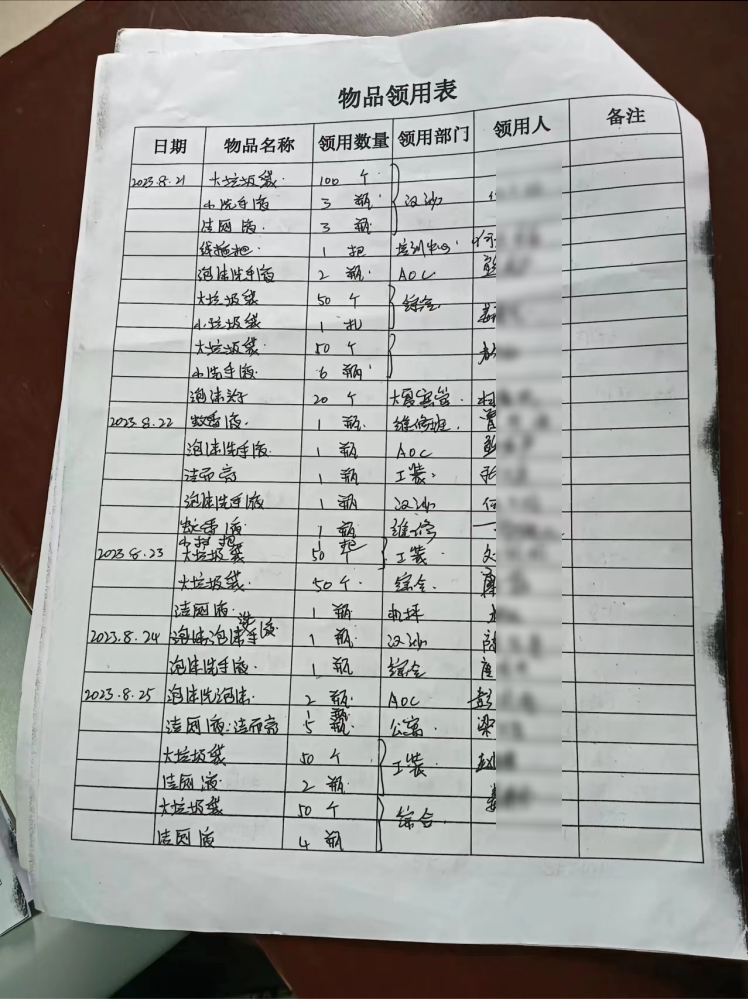 物品领用表
日期 物品名称 领用数量 领用部门 领用人 备注
2023.8.21 大垃圾袋. 100 个
小洗手液 3 瓶 汉沙
洁厕液. 3 瓶
线拖把. 1 把 培训中心
泡沫洗手液 2 瓶 AOC
大垃圾袋 50 个 综合
小垃圾袋 1 扎
大垃圾袋. 50 个
小洗手液. 6 瓶
泡沫 20 个
2023.8.22 液. 1 瓶. 维修班.
泡沫洗手液. 1 瓶 AOC
洁而亮 1 瓶 工装.
泡沫洗手液 1 瓶 汉沙
液. 1 瓶 维修
小扫把 1 把
2023.8.23 大垃圾袋 50 个 工装
大垃圾袋. 50 个. 综合.
洁厕液. 1 瓶 机坪
2023.8.24 泡沫泡沫洗手液 1 瓶 汉沙
泡沫洗手液. 1 瓶 综合
2023.8.25 泡沫洗泡沫. 2 瓶 AOC
洁厕液:洁而亮 5 瓶 1 瓶 公寓.
大垃圾袋 50 个 工装.
洁厕液 2 瓶
大垃圾袋 50 个 综合.
洁厕液 4 瓶